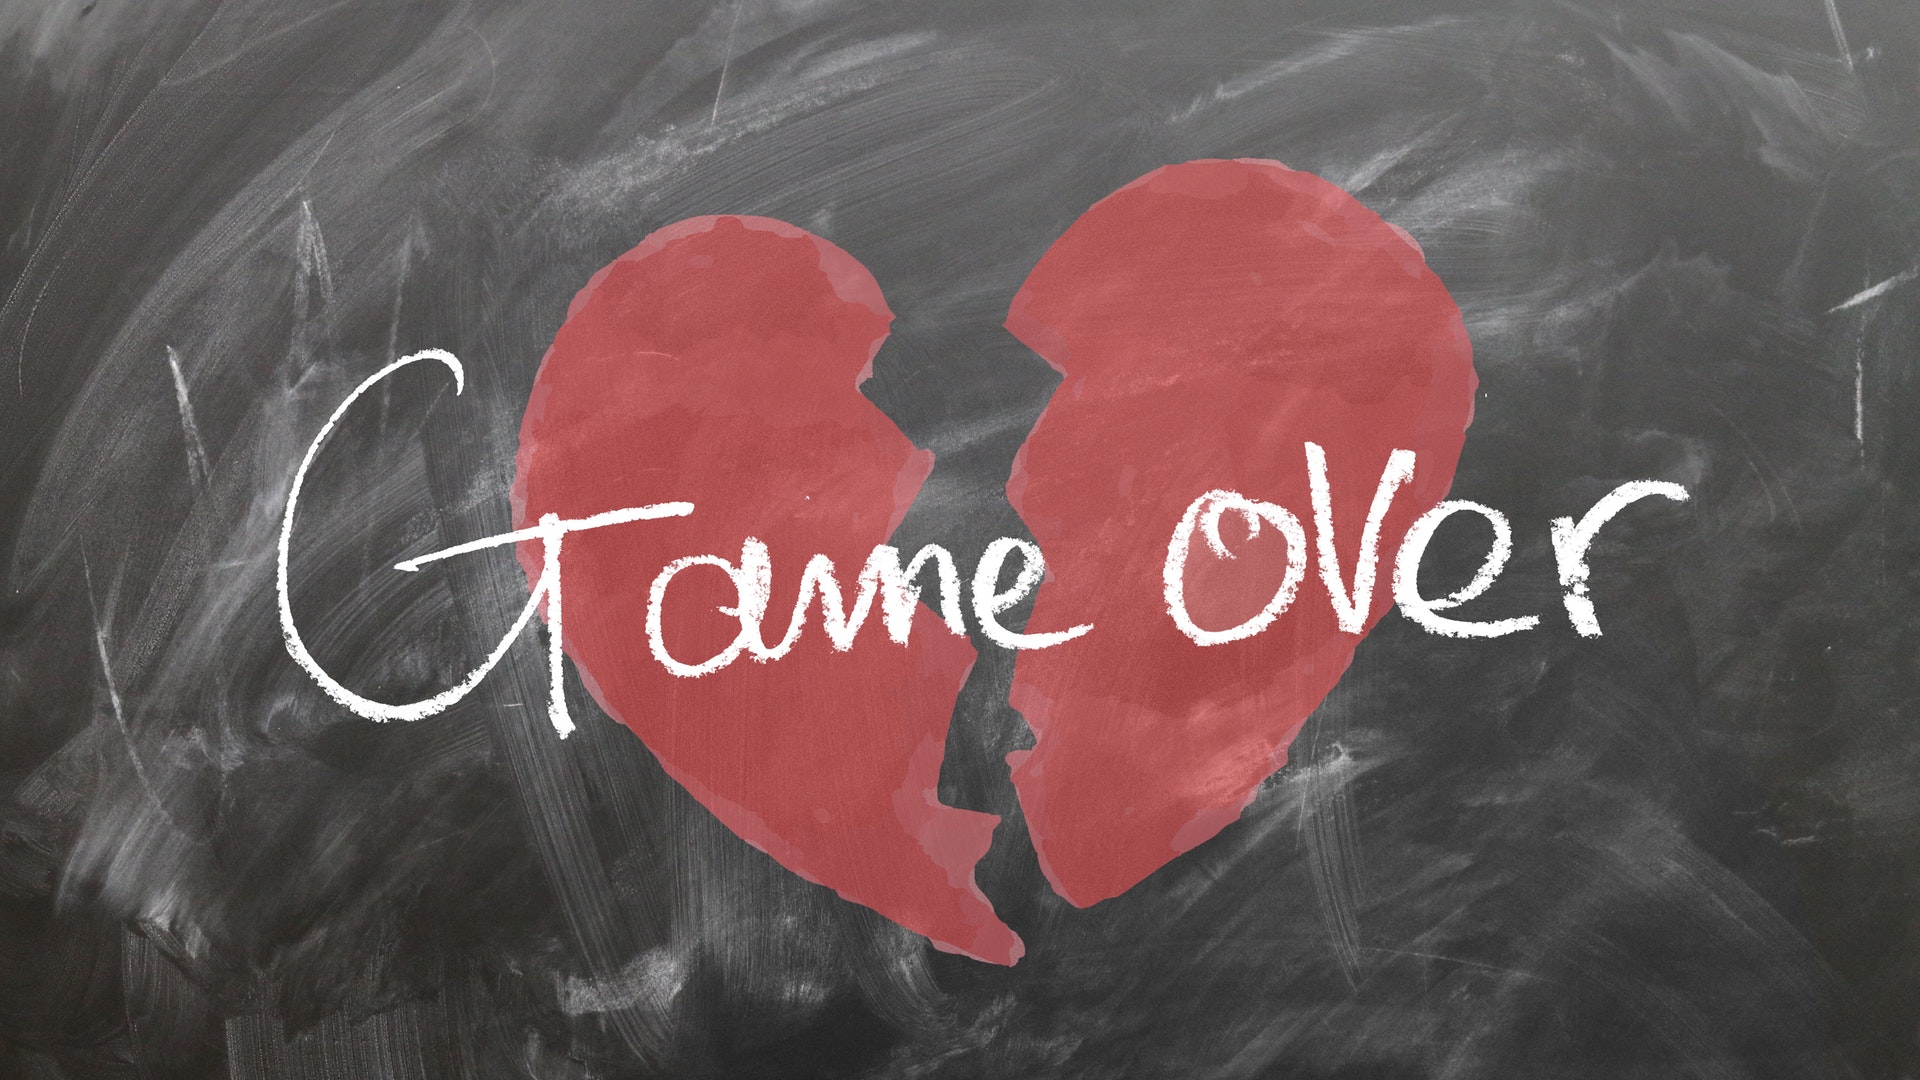 Game over